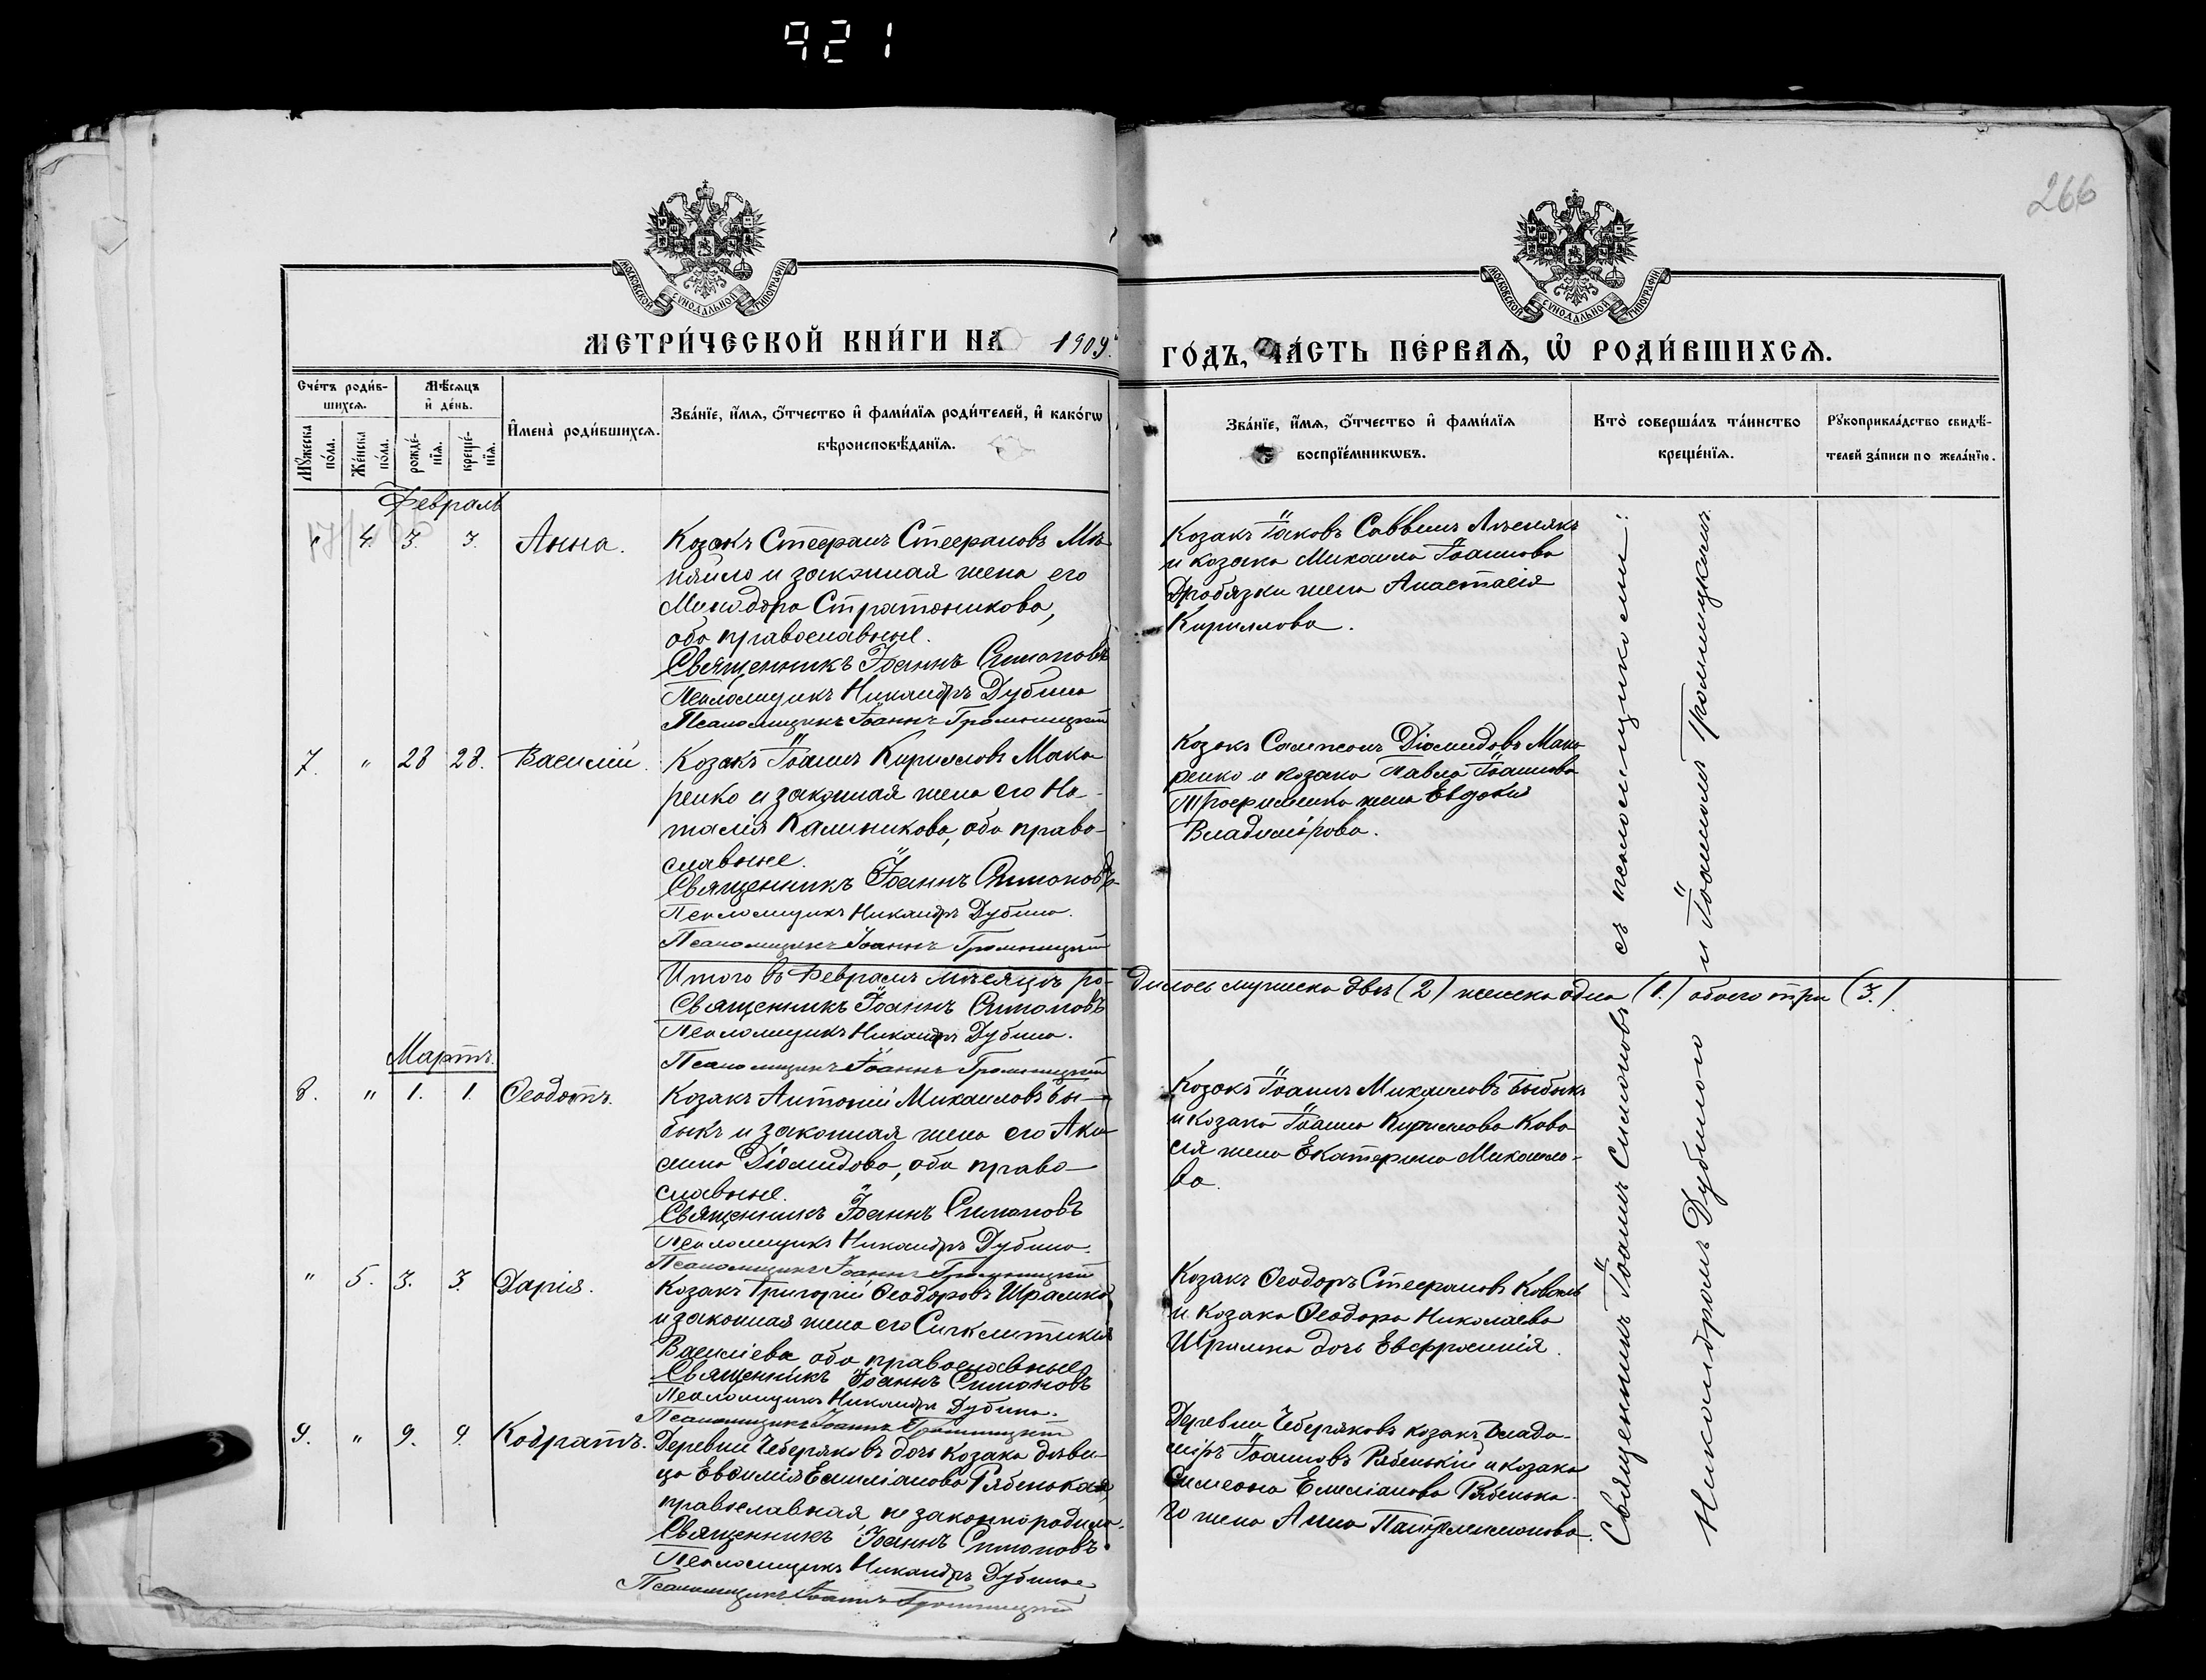 921
266
МОСКОВСКОЙ СѴНОДАЛЬНОЙ ТИПОГРАФІИ
МЕТРИ́ЧЕСКОЙ КНИ́ГИ НА 1909.
МОСКОВСКОЙ СѴНОДАЛЬНОЙ ТИПОГРАФІИ
ГО́ДЪ, ЧА́СТЬ ПЕ́РВАЯ, Ѡ РОДИ́ВШИХСЯ.
Сче́тъ роди́в-
шихся.
Мꙋ́жеска
по́ла.
Же́нска
по́ла.
Мѣ́сяцъ
и҆ де́нь.
рожде́-
нїя.
креще́-
нїя.
И҆мена̀ роди́вшихся.
Зва́нїе, и҆́мя, ѻ҆́тчество и҆ фами́лїя роди́телей, и҆ како́гѡ
вѣроисповѣ́данїя.
Зва́нїе, и҆́мя, ѻ҆́тчество и҆ фами́лїя
воспрїе́мникѡвъ.
Кто̀ соверша́лъ та́инство
креще́нїя.
Рꙋкоприкла́дство свидѣ́-
телей за́писи по жела́нїю.
Февраль
" 4. 3. 3. Анна.
Козакъ Стефанъ Стефановъ
и законная жена его
Минодора Стратоникова,
оба православные.
Священникъ Іоаннъ Симоновъ
Псаломщикъ Никандръ Дубина
Псаломщикъ Іоаннъ Громницкій
Козакъ Іаковъ Саввинъ
и козака Михаила Іоаннова
Дробязки жена Анастасія
Кириллова.
7. " 28 28. Василій.
Козакъ Іоаннъ Кирилловъ Мака
ренко и законная жена его На-
талія Калиникова, оба право-
славные.
Священникъ Іоаннъ Симоновъ
Псаломщикъ Никандръ Дубина.
Псаломщикъ Іоаннъ Громницкій
Козакъ Сампсонъ Діомидовъ Мака
ренко и козака Павла Іоаннова
Трофименка жена Евдокія
Владимірова.
Итого въ Февралѣ мѣсяцѣ ро-дилось мужеска два (2) женска одна (1.) обоего три (3.)
Священникъ Іоаннъ Симоновъ
Псаломщикъ Никандръ Дубина.
Псаломщикъ Іоаннъ Громницкій
Мартъ.
8. " 1. 1. Ѳеодотъ.
Козакъ Антоній Михаиловъ Бы-
быкъ и законная жена его Аки
лина Діомидова, оба право-
славные.
Священникъ Іоаннъ Симоновъ
Псаломщикъ Никандръ Дубина.
Псаломщикъ Іоаннъ Громницкій
Козакъ Іоаннъ Михаиловъ Быбыкъ
и козака Іоанна Кириллова Кова
ля жена Екатерина Михаило-
ва.
" 5. 3. 3. Дарія.
Козакъ Григорій Ѳеодоровъ Шрамко
и законная жена его Сигклитикія
Василіева оба православные
Священникъ Іоаннъ Симоновъ
Псаломщикъ Никандръ Дубина.
Псаломщикъ Іоаннъ Громницкій
Козакъ Ѳеодоръ Стефановъ Коваль
и козака Ѳеодора Николаева
Шрамка дочь Евфросинія.
9. " 9. 9. Кодратъ.
Деревни Чеберяковъ дочь козака дѣви-
ца Евѳимія Емиліанова Рябенькая,
православная, незаконнородила.
Священникъ Іоаннъ Симоновъ
Псаломщикъ Никандръ Дубина
Псаломщикъ Іоаннъ Громницкій
Деревни Чеберяковъ козакъ Влади-
міръ Іоанновъ Рябенькій и козака
Симеона Емиліанова Рябенька-
го жена Анна Пантелеимонова.
Священникъ Іоаннъ Симоновъ съ псаломщиками:
Никандромъ Дубиною и Іоанномъ Громницкимъ.